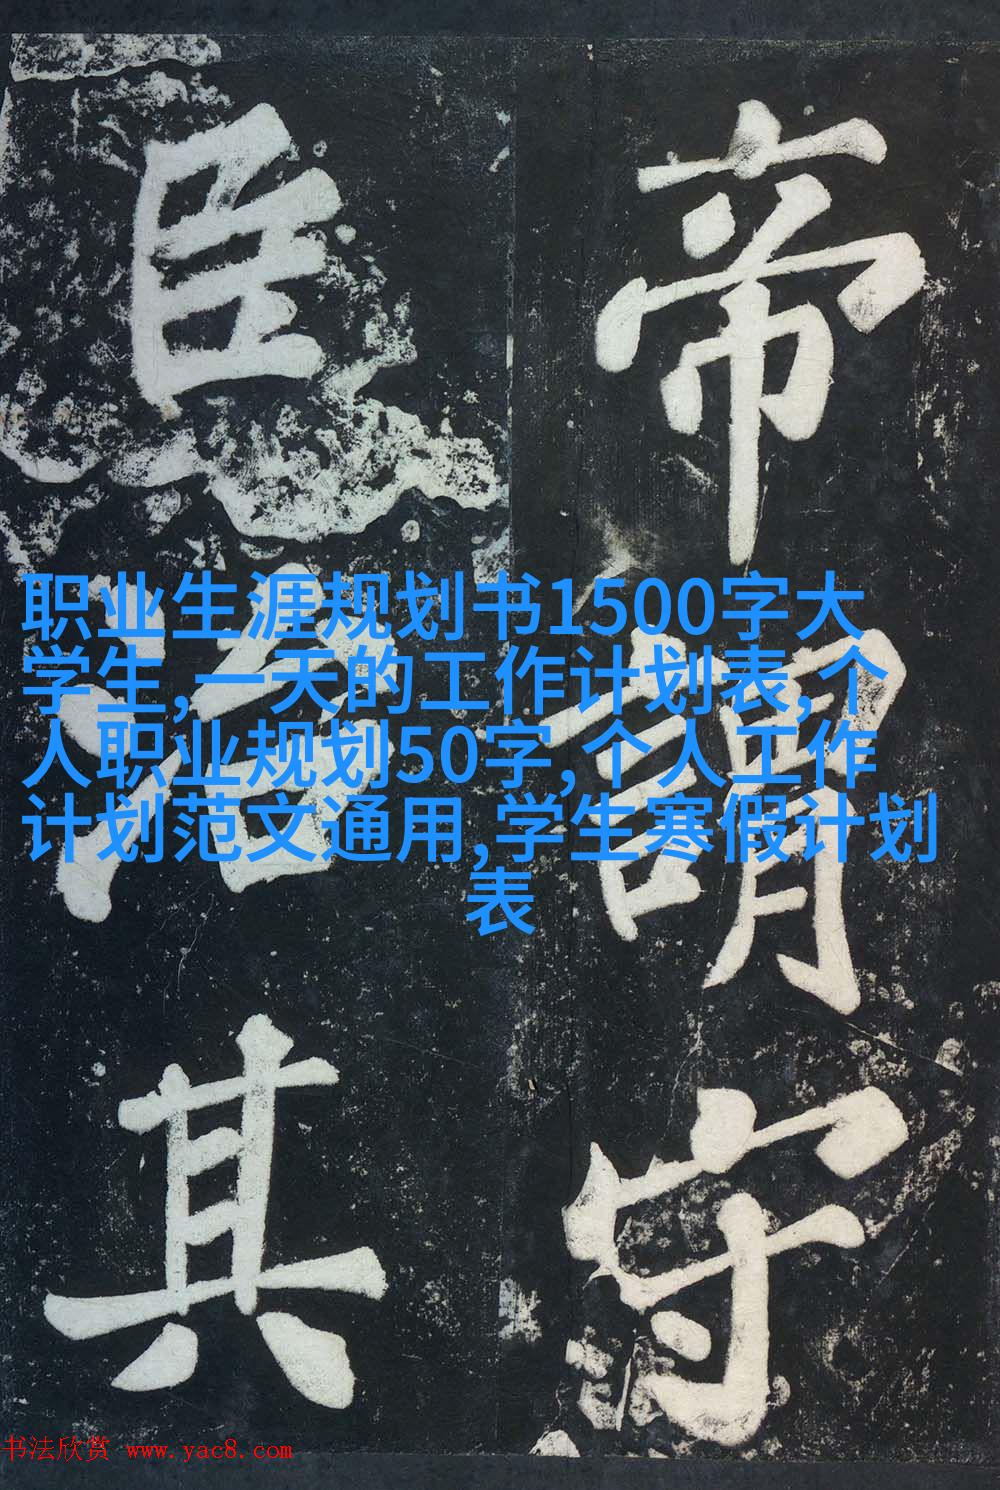 帝謂守
臣治其
职业生涯规划书1500字大
学生,一天的工作计划表,个
人职业规划50字,个人工作
计划范文通用,学生寒假计划
表
书法欣赏 www.yac8.com